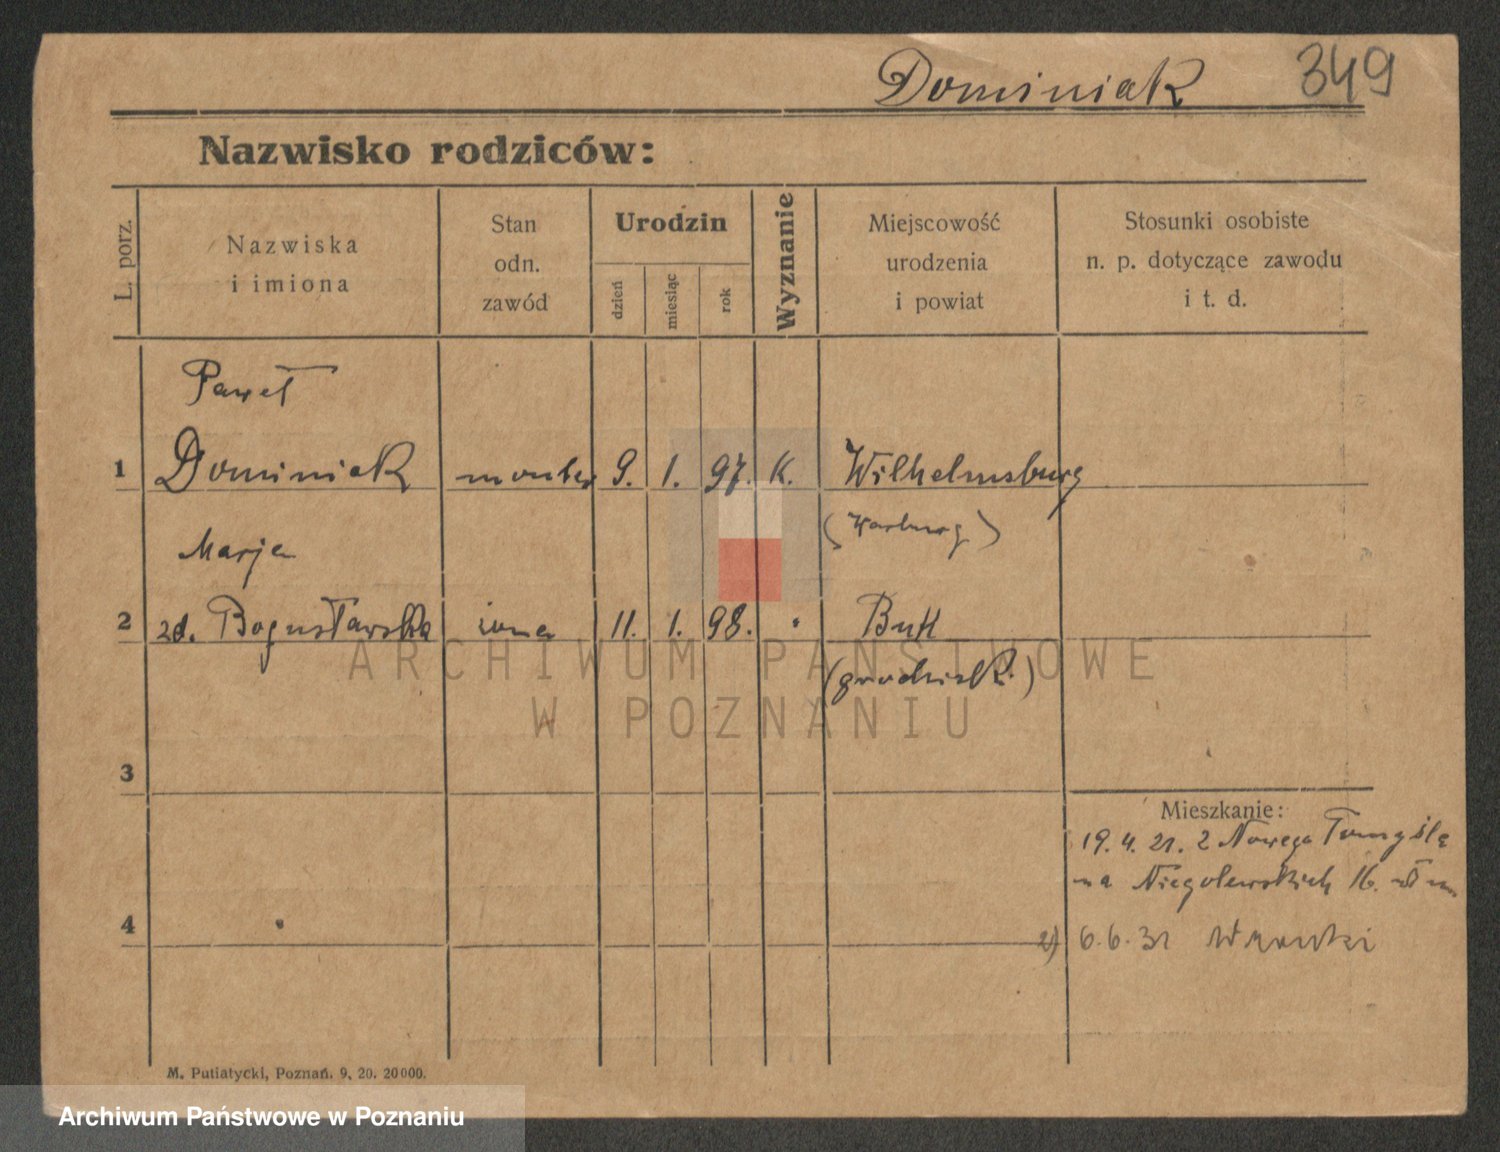 Dominiak 349
Nazwisko rodziców:
L. porz.
Nazwiska
i imiona
Stan
odn.
zawód
Urodzin
dzień
miesiąc
rok
Wyznanie
Miejscowość
urodzenia
i powiat
Stosunki osobiste
n. p. dotyczące zawodu
i t. d.
Paweł
1 Dominiak monter 9. 1. 97. K. Wilhelmsburg
(Harburg)
Marja
2 zd. Bogusławska żona 11. 1. 98. " Buk
(grodzisk.)
ARCHIWUM PAŃSTWOWE
W POZNANIU
3
Mieszkanie:
19. 4. 21. z Nowego Tomyśla
na Niegolewskich 16.
4
2) 6.6.31 Wronki
M. Putiatycki, Poznań. 9, 20. 20000.
Archiwum Państwowe w Poznaniu